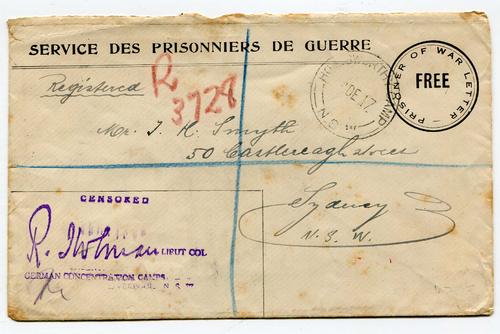 SERVICE DES PRISONNIERS DE GUERRE
PRISONER OF WAR LETTER
FREE
Registered
R
3728
HOLSWORTHY CAMP
DE 17
N.S.W
Mr. J. K. Smyth
50 Castlereagh Street
Sydney
N. S. W.
CENSORED
R. Holman LIEUT COL
GERMAN CONCENTRATION CAMPS.
N. S. W